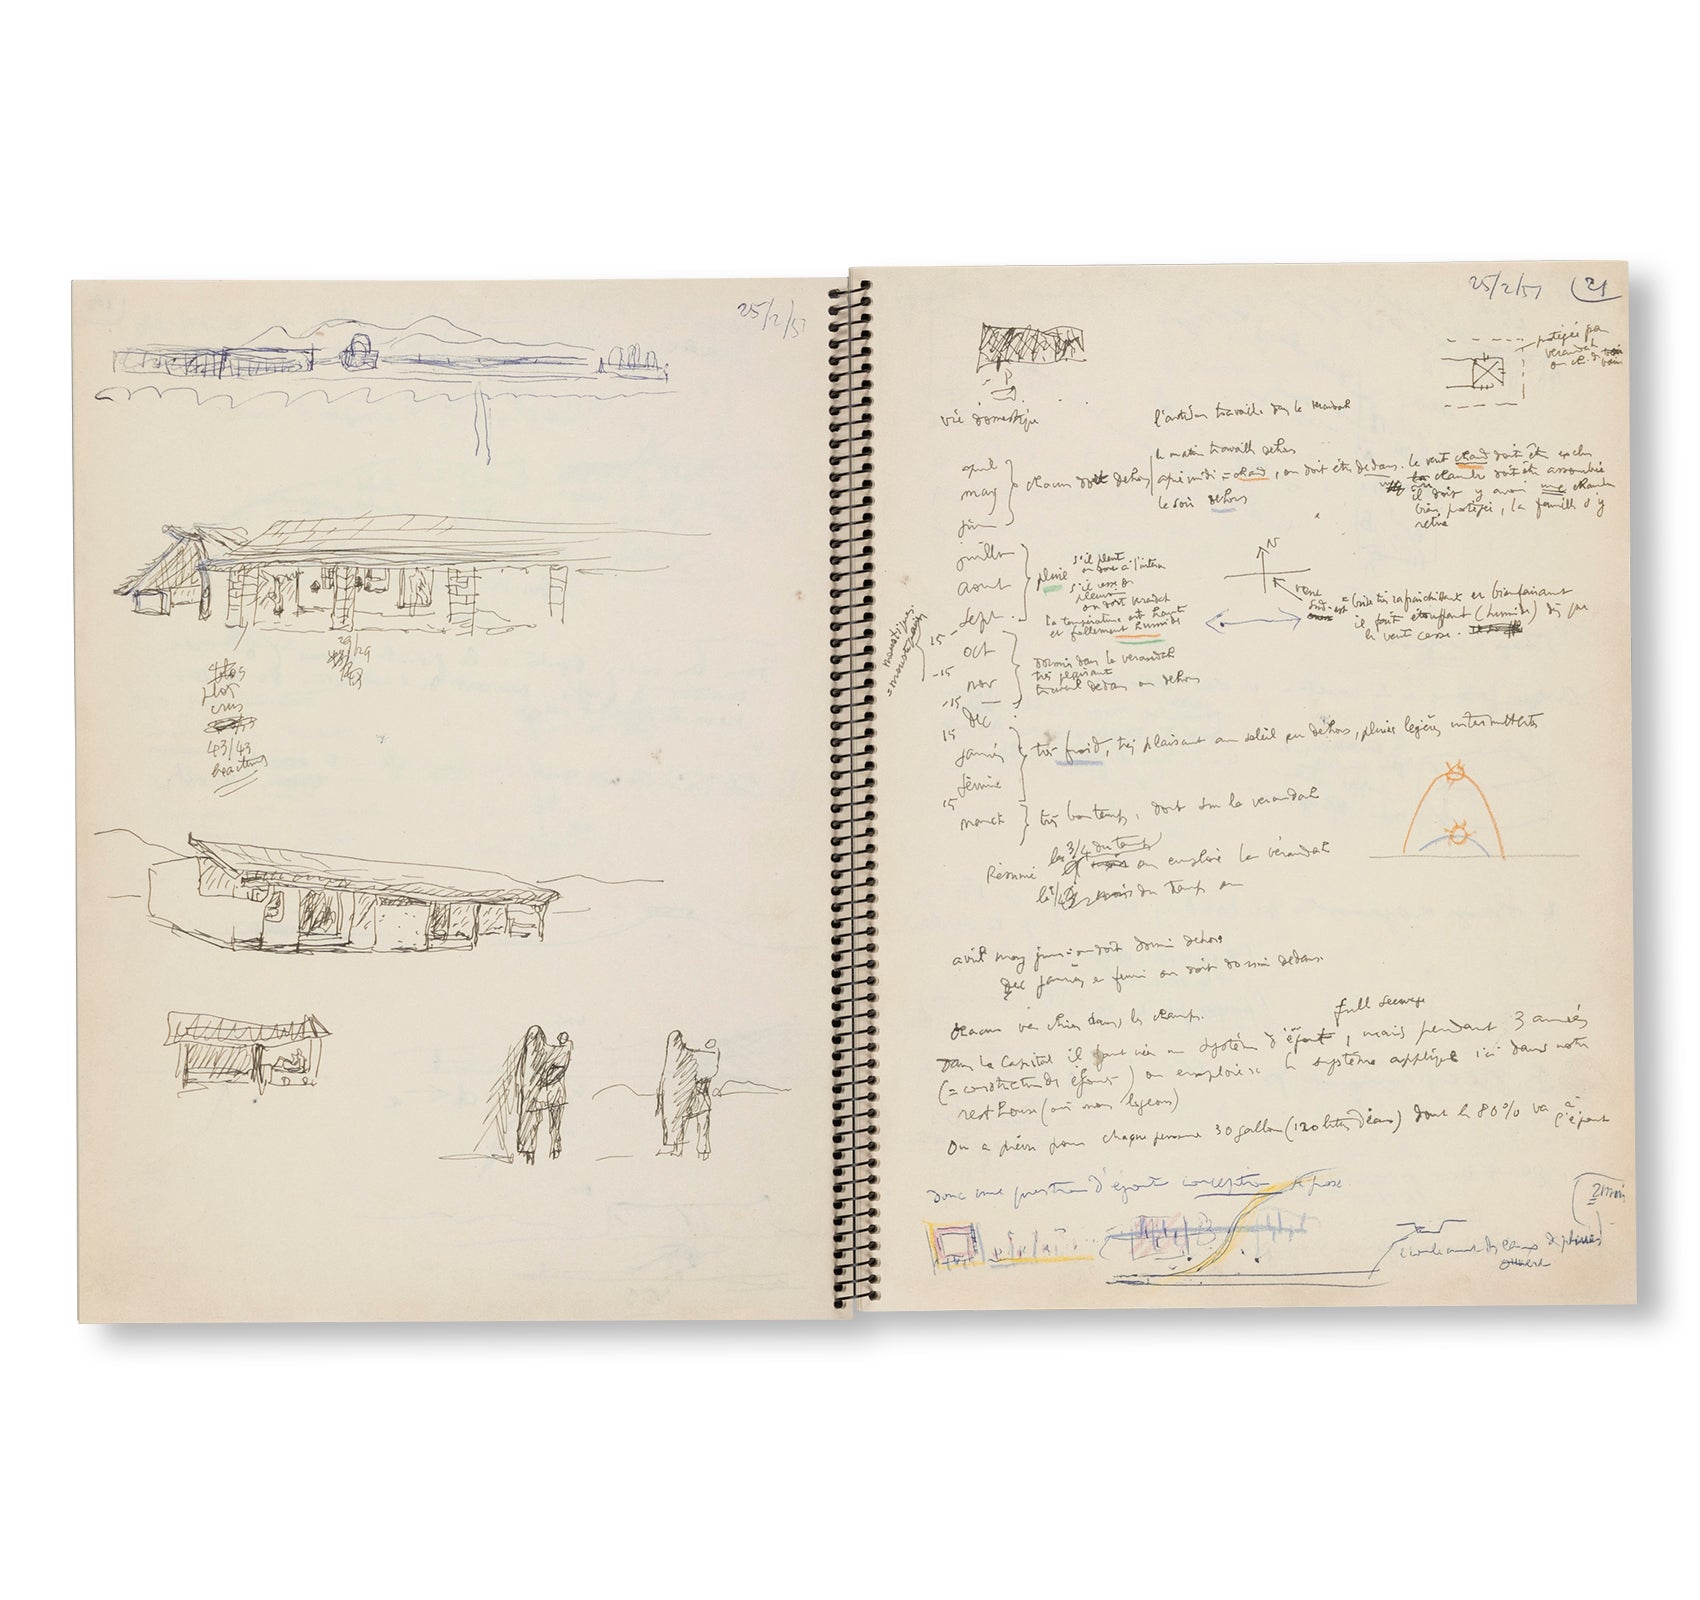 25/2/51
29/29
plots
crus
43/43
25/2/51
21
protégée par
verandah
vie domestique
l'artisan travaille dans le verandah
le matin travaille dehors
april
may
juin
chacun dort dehors
après midi = chaud, on doit être dedans. le vent chaud doit être exclu
la chambre doit être assombrie
il doit y avoir une chambre
bien protégée, la famille s'y
retire
le soir dehors
juillet
aout
sept.
pluie
s'il pleut
on dort à l'intérieur
s'il cesse de
pleuvoir
on dort verandah
la température est haute
et follement humide
N
vent
sud-est
= brise très rafraichissante et bienfaisante
il fait étouffant (humide) dès que
le vent cesse.
moustiques
= moustiquaire
15
oct
-15
nov
-15
dormir dans le verandah
très plaisant
travail dedans ou dehors
dec
15
janvier
février
très froid, très plaisant au soleil en dehors, pluies légères intermittentes
15
march
très beau temps, dort sur la verandah
Résumé
les 3/4 du temps on emploie la verandah
le 1/4 du temps on
avril may juin: on doit dormir dehors
dec janvier et fevrier on doit dormir dedans.
chacun va chier dans les champs.
full sewage
Dans la Capital il faut un système d'égout, mais pendant 3 années
(= construction des égouts) on emploiera le système appliqué ici dans notre
rest house (où nous logeons)
On a prévu pour chaque personne 30 gallons (120 litres d'eau) dont le 80% va à
l'égout
donc une question d'égouts conception se pose.
2 mois
écoulement des eaux de pluies
ouvert